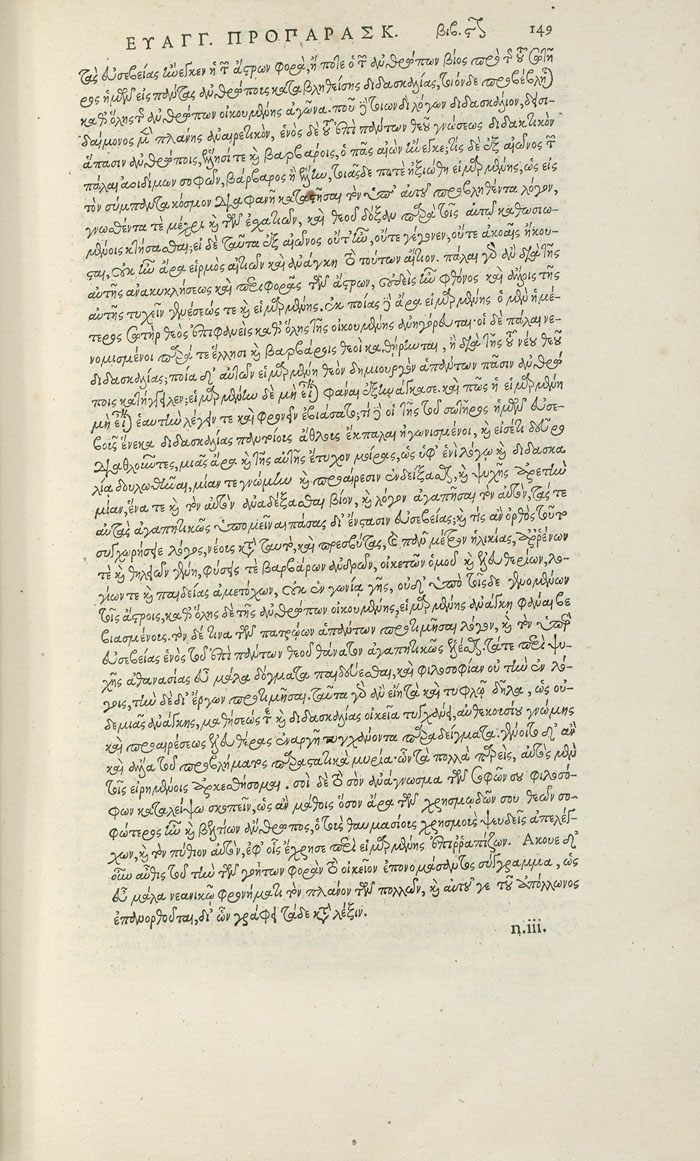 ΕΥΑΓΓ. ΠΡΟΠΑΡΑΣΚ. βιβ. ςʹ 149
τὰς εὐσεβείας ἤνεγκεν ἡ τῶν ἄστρων φορά, ἢ πότε ὁ τῶν ἀνθρώπων βίος πρὸ τῆς τοῦ σωτῆ-
ρος ἡμῶν εἰς πάντας ἀνθρώποις καταβληθείσης διδασκαλίας, τοιόνδε προβέβληται
καθ' ὅλης τῆς ἀνθρώπων οἰκουμένης ἀγῶνα. ποῦ δὲ τοιωνδὶ λόγων διδασκάλιον, δεισι-
δαίμονος μὲν πλάνης ἀναιρετικὸν, ἑνὸς δὲ τοῦ ἐπὶ πάντων θεοῦ γνώσεως διδακτικὸν
ἅπασιν ἀνθρώποις, ἕλλησί τε καὶ βαρβάροις, ὁ πᾶς αἰὼν ἤνεγκε; τίς δὲ ἐξ αἰῶνος τῶν
πάλαι ἀοιδίμων σοφῶν, βάρβαρος ἢ ἕλλην, τοιᾶσδε ποτὲ ἠξιώθη εἱμαρμένης, ὡς εἰς
τὸν σύμπαντα κόσμον διαφανῆ καταστῆσαι τὸν ὑπ' αὐτοῦ προβληθέντα λόγον,
γνωσθέντα τὲ μέχρι καὶ τῶν ἐσχατιῶν, καὶ θεοῦ δόξαν παρὰ τοῖς αὐτῷ καθωσιω-
μένοις κτήσασθαι; εἰ δὲ ταῦτα ἐξ αἰῶνος οὔτ' ἦν, οὔτε γέγονεν, οὔτε ἀκοαῖς ἤκου-
σται, οὐκ ἦν ἄρα εἱρμὸς αἰτιῶν καὶ ἀνάγκη τὸ τούτων αἴτιον. πάλαι γὰρ ἂν διὰ τῆς
αὐτῆς ἀνακυκλήσεως καὶ περιφορᾶς τῶν ἄστρων, οὐδεὶς ἦν φθόνος καὶ ἄνδρας τῆς
αὐτῆς τυχεῖν γενέσεώς τε καὶ εἱμαρμένης. ἐκ ποίας δὲ ἄρα εἱμαρμένης ὁ μὲν ἡμέ-
τερος σωτὴρ θεὸς ἐπιφανεὶς καθ' ὅλης τῆς οἰκουμένης ἀνηγόρευται· οἱ δὲ πάλαι νε-
νομισμένοι παρά τε ἕλλησι καὶ βαρβάροις θεοὶ καθῄρηνται, ἢ διὰ τῆς τοῦ νέου θεοῦ
διδασκαλίας; ποία δ' αὐτῶν εἱμαρμένη θεὸν δημιουργὸν ἁπάντων πᾶσιν ἀνθρώ
ποις κατήγγειλεν; εἱμαρμένην δὲ μὴ εἶναι φάναι ἐξηνάγκασε. καὶ πῶς ἡ εἱμαρμένη
μὴ εἶναι ἑαυτὴν λέγειν τε καὶ φρονεῖν ἐβιάσατο; τί δὲ οἱ τῆς τοῦ σωτῆρος ἡμῶν εὐσε-
βοῦς ἕνεκα διδασκαλίας πολυτρίοις ἄθλοις ἔκπαλαι ἠγωνισμένοι, καὶ εἰσέτι δεῦρο
διαθλοῦντες, μιᾶς ἄρα καὶ τῆς αὐτῆς ἔτυχον μοίρας, ὡς ὑφ' ἑνὶ λόγῳ καὶ διδασκα
λίᾳ δουλωθῆναι, μίαν τε γνώμην καὶ προαίρεσιν ἐνδείξασθαι, καὶ ψυχῆς ἀρετὴν
μίαν, ἕνα τε καὶ τὸν αὐτὸν ἀναδέξασθαι βίον, καὶ λόγον ἀγαπῆσαι τὸν αὐτόν, τάς τε
αὐτὰς ἀγαπητικῶς ὑπομεῖναι πάσας δι' ἔνστασιν εὐσεβείας; καὶ τίς ἂν ὀρθὸς τοῦτο
συγχωρήσειε λόγος, νέοις κατὰ ταυτὸ, καὶ πρεσβύτας, τὸ πᾶν μέτρον ἡλικίας, ἀρρένων
τε καὶ θηλειῶν γένη, φύσεις τε βαρβάρων ἀνδρῶν, οἰκετῶν ὁμοῦ καὶ ἐλευθερίων, λο-
γίων τε καὶ παιδείας ἀμετόχων, οὐκ ἐν γωνίᾳ γῆς, οὐδ' ὑπὸ τοῖςδε γενομένων
τοῖς ἄστροις, καθ' ὅλης δὲ τῆς ἀνθρώπων οἰκουμένης, εἱμαρμένης ἀνάγκῃ φάναι βε
βιασμένοις. τὸν δέ τινα τῶν πατρῴων ἁπάντων προτιμῆσαι λόγον, καὶ τὸν ὑπὲρ
εὐσεβείας ἑνὸς τοῦ ἐπὶ πάντων θεοῦ θάνατον ἀγαπητικῶς ἑλέσθαι. τά τε περὶ ψυ-
χῆς ἀθανασίας εὖ μάλα δόγματα παιδεύεσθαι, καὶ φιλοσοφίαν οὐ τὴν ἐν λό-
γοις, τὴν δὲ δι' ἔργων προτιμῆσαι. ταῦτα γὰρ ἂν εἴη τὰ καὶ τυφλῷ δῆλα, ὡς οὐ-
δεμιᾶς ἀνάγκης, μαθήσεως δὲ καὶ διδασκαλίας οἰκεῖα τυγχάνει, αὐθεκουσίου γνώμης
καὶ προαιρέσεως ἐλευθέρας ἐναργῆ τυγχάνοντα παραδείγματα. γένοιτο δ' ἂν
καὶ ἄλλα τοῦ προβλήματος παραστατικὰ μυρία· ὧν τὰ πολλὰ παρεὶς, αὐτὸς μὲν
τοῖς εἰρημένοις ἀρκεσθήσομαι. σοὶ δὲ τὸ σὸν ἀνάγνωσμα τῶν σοφῶν σου φιλοσό-
φων καταλείψω σκοπεῖν, ὡς ἂν μάθοις ὅσον ἄρα τῶν χρησμῳδῶν σου θεῶν σο-
φώτερος ἦν καὶ βελτίων ἄνθρωπος, ὁ τοὺς θαυμασίους χρησμοὺς ψευδεῖς ἀπελέγ-
χων, καὶ τὸν πύθιον αὐτὸν, ἐφ' οἷς ἔχρησε περὶ εἱμαρμένης ἐπιρραπίζων. Ἄκουε δ'
οὖν αὖθις τοῦ τὴν τῶν γοήτων φορὰν τὸ οἰκεῖον ἐπονομάσαντος σύγγραμμα, ὡς
εὖ μάλα νεανικῷ φρονήματι τὸν πλάνον τῶν πολλῶν, καὶ αὐτοῦ γε τοῦ ἀπόλλωνος
ἐπανορθοῦται, δι' ὧν γράφει τάδε κατὰ λέξιν.
n.iii.